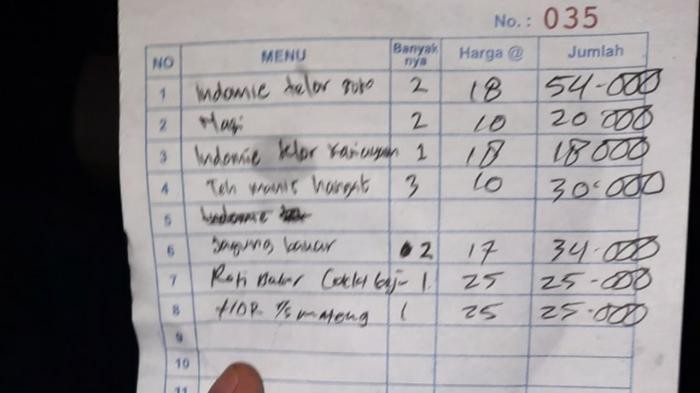 No.: 035
NO MENU Banyak nya Harga @ Jumlah
1 Indomie telor soto 2 18 54.000
2 Nasi 2 10 20.000
3 Indomie telor 1 18 18000
4 Teh manis hangat 3 10 30.000
5 Indomie
6 Jagung bakar 2 17 34.000
7 Roti Bakar Coklat keju 1 25 25.000
8 1/2 mateng 1 25 25.000
9
10
11